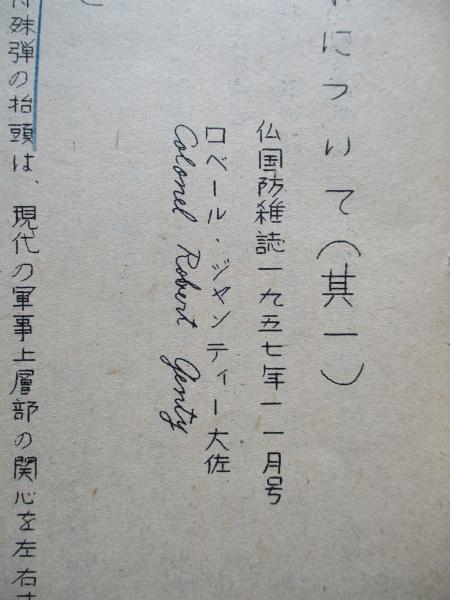 について(其一)
仏国防雑誌一九五七年一一月号
ロベール・ジャンティー大佐
Colonel Robert Genty
殊弾の抬頭は、現代の軍事上層部の関心を左右